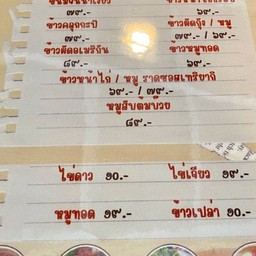 ๗๙.- ๖๙.-
ข้าวคลุกกะปิ ข้าวผัดกุ้ง / หมู
๗๙.- ๗๙.- / ๖๙.-
ข้าวผัดอเมริกัน ข้าวหมูทอด
๘๙.- ๖๙.-
ข้าวหน้าไก่ / หมู ราดซอสเทริยากิ
๖๙.- / ๗๙.-
หมูสับต้มบ๊วย
๘๙.-
ไข่ดาว ๑๐.- ไข่เจียว ๑๙.-
หมูทอด ๑๙.- ข้าวเปล่า ๑๐.-